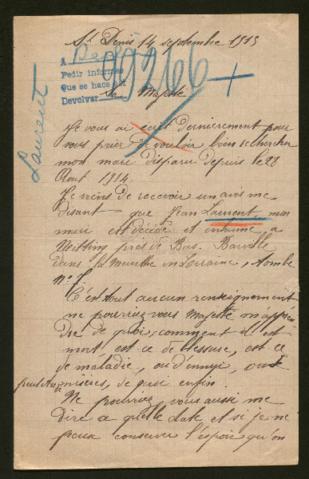 St Denis 14 septembre 1915
A
Pedir informes
Que se hace
Devolver
99266 +
Laurent
Sa Majesté
Je vous ai écrit dernièrement pour
vous prier de vouloir bien rechercher
mon mari disparu depuis le 22
Août 1914.
Je viens de recevoir un avis me
disant que Jean Laurent mon
mari est décédé et inhumé à
près de
dans la Meurthe en Lorraine, tombe
n° 7
C'est tout aucun renseignement
ne pourriez vous Majesté m'appren
dre de quoi, comment il est
mort est ce de blessure, est ce
de maladie, ou d'ennui, ou
peut être misères, de quoi enfin.
Ne pourriez vous aussi me
dire à quelle date et si je ne
peux conserver l'espoir qu'on